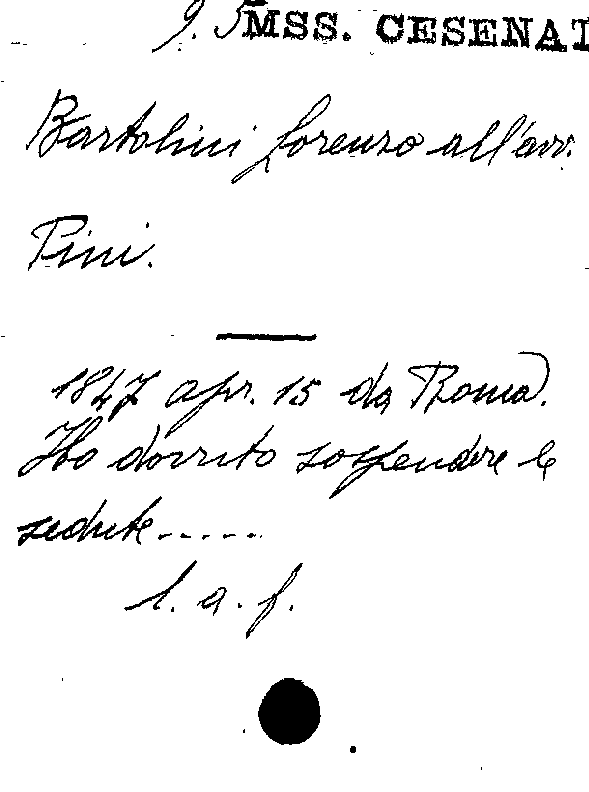 9. 5 MSS. CESENAT
Bartolini Lorenzo all'avv.
Pini.
1847 apr. 15 da Roma.
Ho dovuto sospendere le
sedute.....
l. a. f.